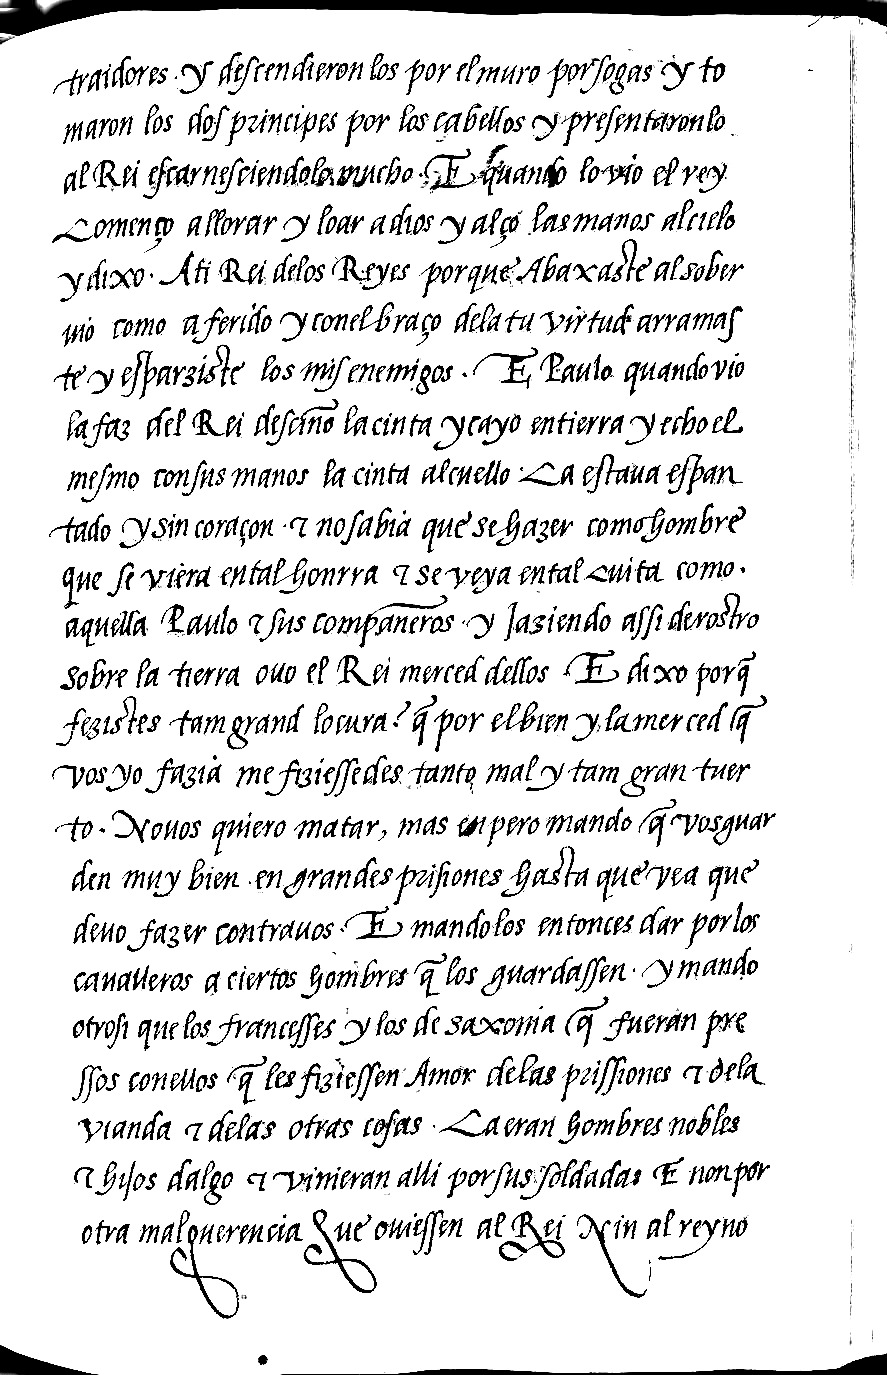 traidores · y descendieron los por el muro por sogas y to
maron los dos principes por los cabellos y presentaron lo
al Rei escarnesciendolo mucho · E quando lo vio el rey
Començo a llorar y loar a dios y alço las manos al cielo
y dixo · Ati Rei delos Reyes porque Abaxaste al sober
uio como a ferido y conel braço dela tu virtud arramas
te y esparziste los mis enemigos · E Paulo quando vio
la faz del Rei descino la cinta y cayo entierra y echo el
mesmo consus manos la cinta al cuello · Ca estaua espan
tado y sin coraçon · ⁊ no sabia que se hazer como hombre
que se viera ental honrra ⁊ se veya ental cuita como ·
aquella Paulo ⁊ sus compañeros · y Jaziendo assi de rostro
sobre la tierra ouo el Rei merced dellos · E dixo porq̃
fezistes tam grand locura? q̃ por el bien y la merced q̃
vos yo fazia me fiziessedes tanto mal y tam gran tuer
to · No uos quiero matar, mas enpero mando q̃ vos guar
den muy bien en grandes prisiones hasta que vea que
deuo fazer contra uos · E mandolos entonces dar por los
caualleros a ciertos hombres q̃ los guardassen · y mando
otrosi que los francesses y los de saxonia q̃ fueran pre
ssos conellos q̃ les fiziessen Amor delas prissiones ⁊ dela
vianda ⁊ delas otras cosas · Ca eran hombres nobles
⁊ hijos dalgo ⁊ vinieran alli por sus soldadas E non por
otra malquerencia Que ouiessen al Rei Nin al reyno